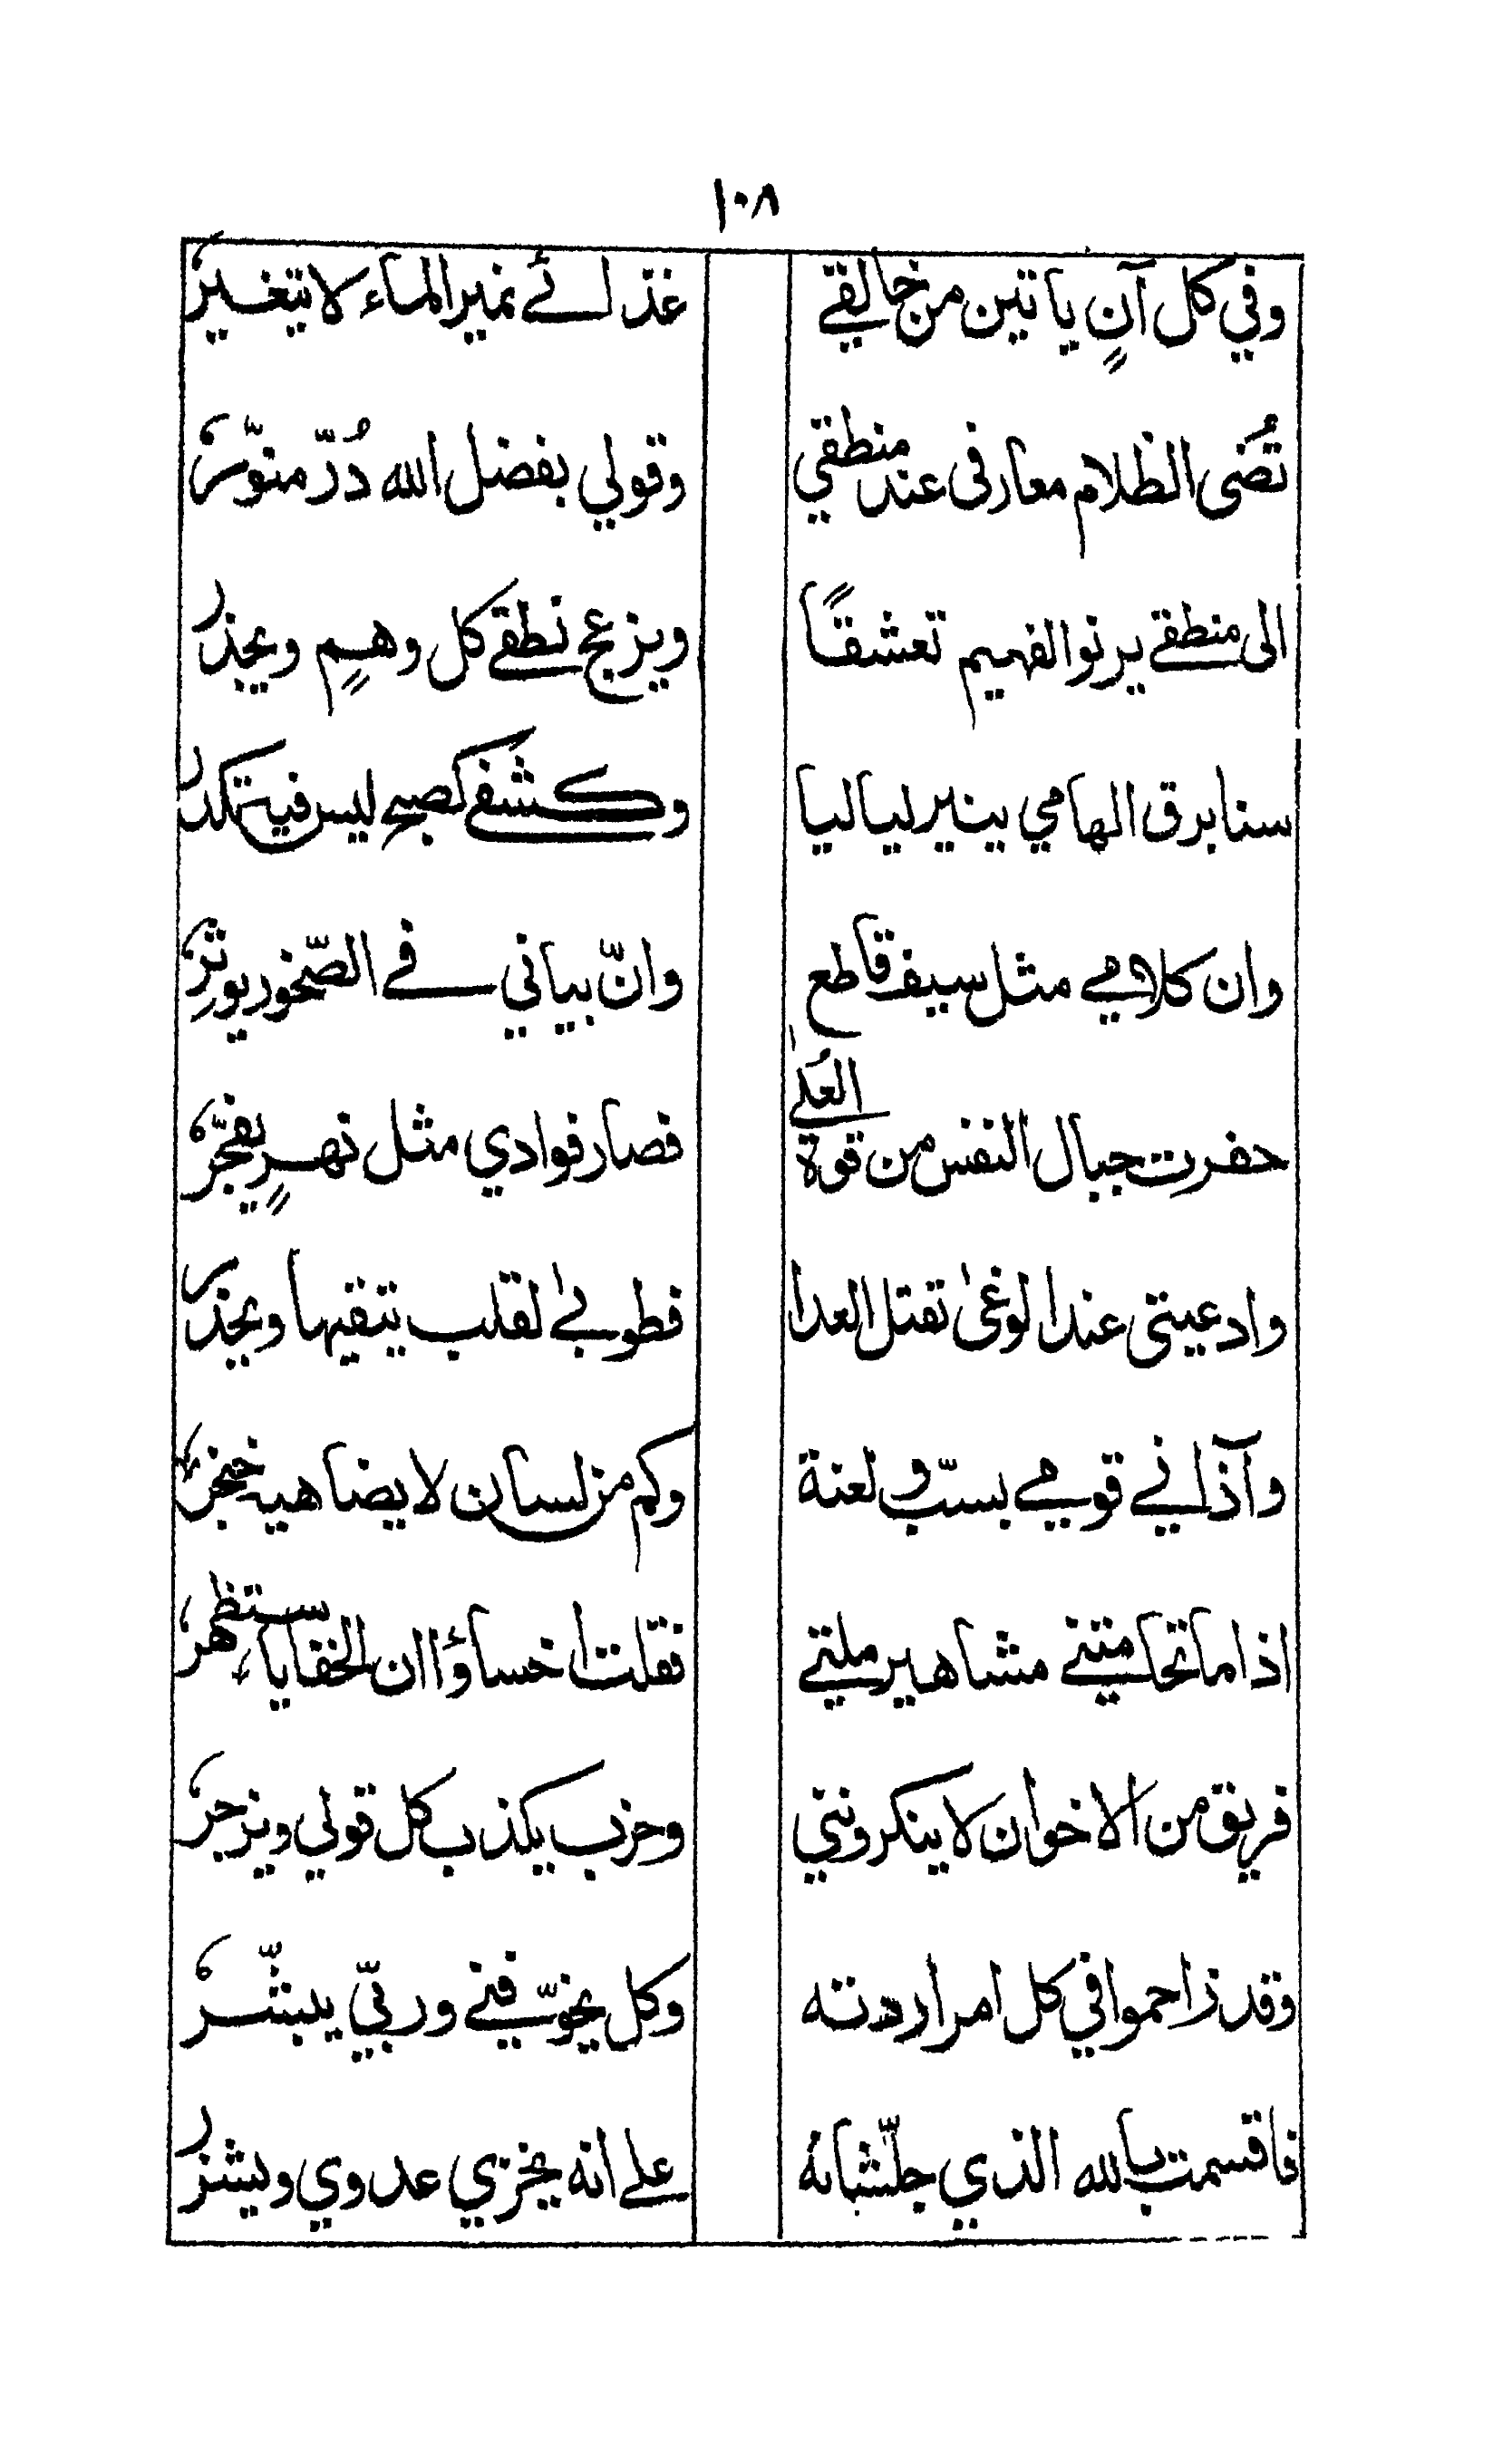 ١٠٨
وفي كل آنٍ ياتين من خالقي غذائے نمير الماء لا يتغير
تُضى الظلام معارفى عند منطقي وقولي بفضل الله دُرّ منوّر
الى منطقي يرنو الفهيم تعشقًا ويزعج نطقي كل وهمٍ ويجذر
سنا برق الهامي ينير لياليا وكشفي كصبح ليس فيه تكدر
وان كلامي مثل سيف قاطع وانّ بياني في الصّخور يوثر
حفرت جبال النفس من قوة العُلى فصار فوادي مثل نهرٍ يفجّر
وادعيتى عند الوغى تقتل العدا فطوبى لقلب يتقيها ويحذر
وآذاني قومي بسبّ ولعنة وكم من لسان لا يضاهيه خنجر
اذا ما تحامتني مشاهير ملتي فقلت اخساؤا ان الخفايا ستظهر
فريق من الاخوان لا ينكرونني وحزب يكذب كل قولي ويزجر
وقد زاحموا في كل امر اردته وكل يخوّفني وربّي يبشّر
فاقسمت بالله الذي جلّ شانه على انه يخزي عدوي ويشزر